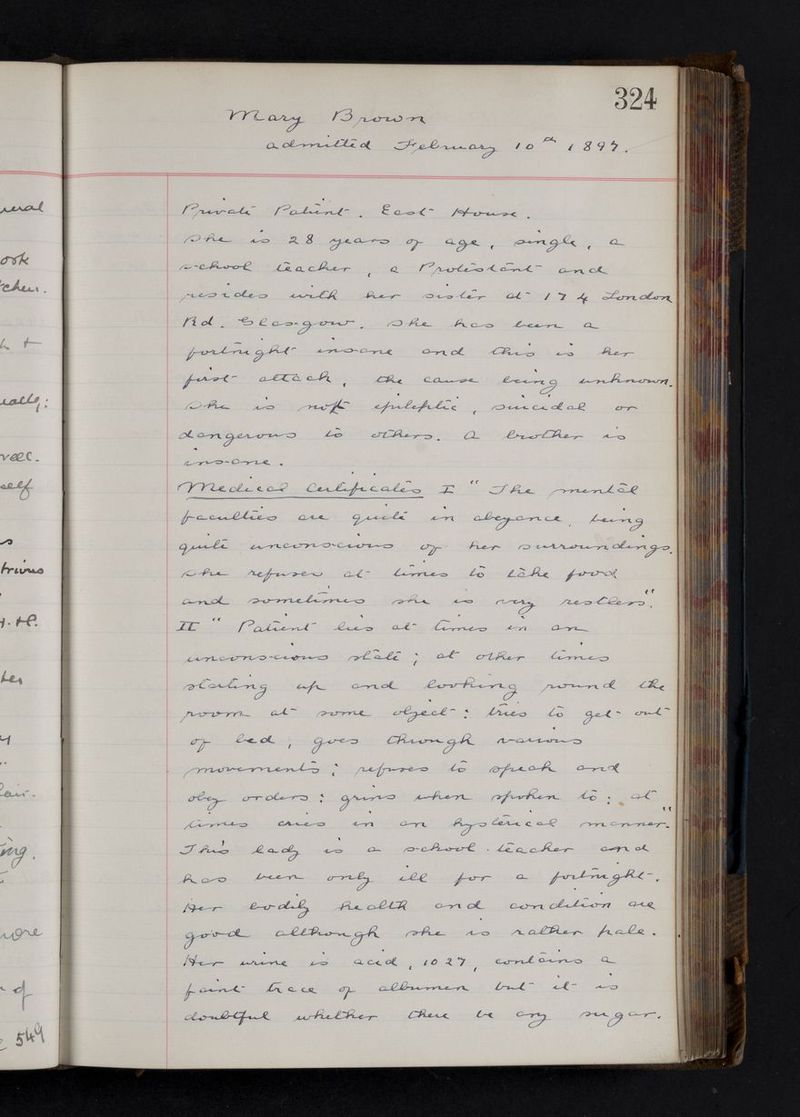 324
Mary Brown
admitted February 10th 1897.
Private Patient. East House.
She is 28 years of age, single, a
school teacher, a Protestant and
resides with her sister at 174 London
Rd. Glasgow. She has been a
fortnight insane and this is her
first attack, the cause being unknown.
She is not epileptic, suicidal or
dangerous to others. A brother is
insane.
Medical Certificates I "The mental
faculties are quite in abeyance, being
quite unconscious of her surroundings.
She refuses at times to take food
and sometimes she is very restless".
II "Patient lies at times in an
unconscious state; at other times
starting up and looking round the
room at some object: tries to get out
of bed, goes through various
movements; refuses to speak and
obey orders: grins when spoken to: at
times cries in an hysterical manner."
This lady is a school-teacher and
has been only ill for a fortnight.
Her bodily health and condition are
good although she is rather pale.
Her urine is acid, 1027, contains a
faint trace of albumen but it is
doubtful whether there be any sugar.
ook
well.
self
H.
ing.
more
of
549